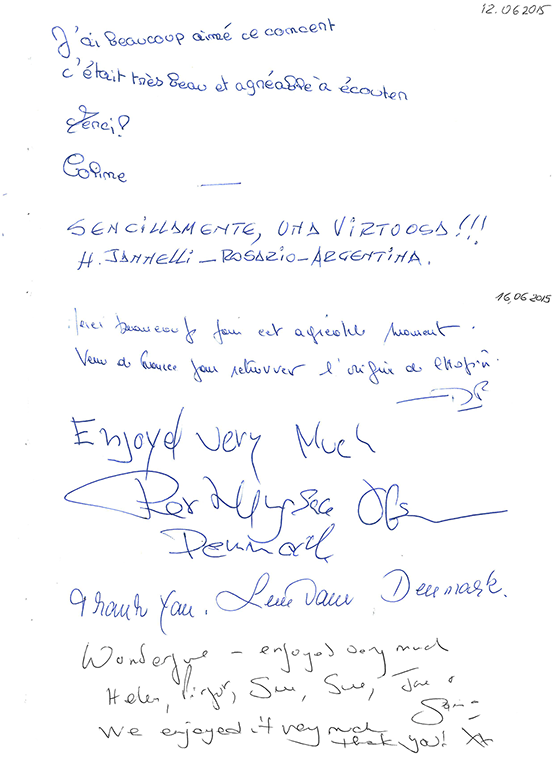 12.06.2015
J'ai beaucoup aimé ce concert
c'était très beau et agréable à écouter
Merci!
Coline
SENCILLAMENTE, UNA VIRTUOSA!!!
H. JANNELLI – ROSARIO – ARGENTINA.
16.06.2015
Merci beaucoup pour cet agréable moment.
Venu de France pour retrouver l'origine de Chopin.
Enjoyd very Much
Per
Denmark
Thank You. Denmark.
Wonderful – enjoyed very much
Helen, Sue, Sue,
We enjoyed it very much
thank you!